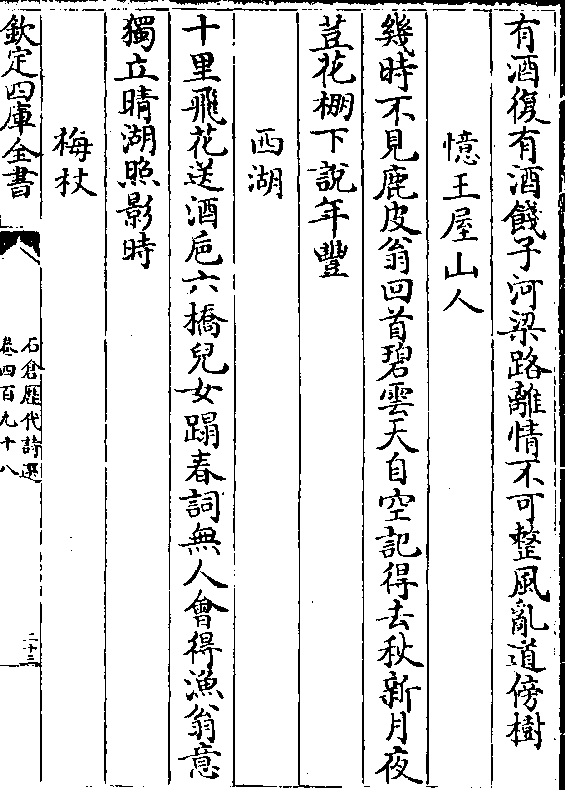 有酒復有酒餞子河梁路離情不可整風亂道傍樹
憶王屋山人
幾時不見鹿皮翁回首碧雲天自空記得去秋新月夜
荳花棚下說年豐
西湖
十里飛花送酒巵六橋兒女踏春詞無人會得漁翁意
獨立晴湖照影時
梅杖
欽定四庫全書
石倉歷代詩選
卷四百九十八
二十三